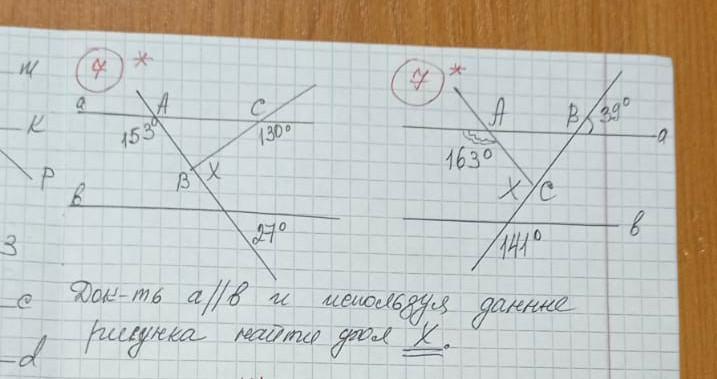 ж
K
P
3
c
d
7 *
a
A
C
153°
130°
B
X
в
27°
7 *
A
B
39°
a
163°
X
C
в
141°
Док-ть a//в и используя данные
рисунка найти угол X.